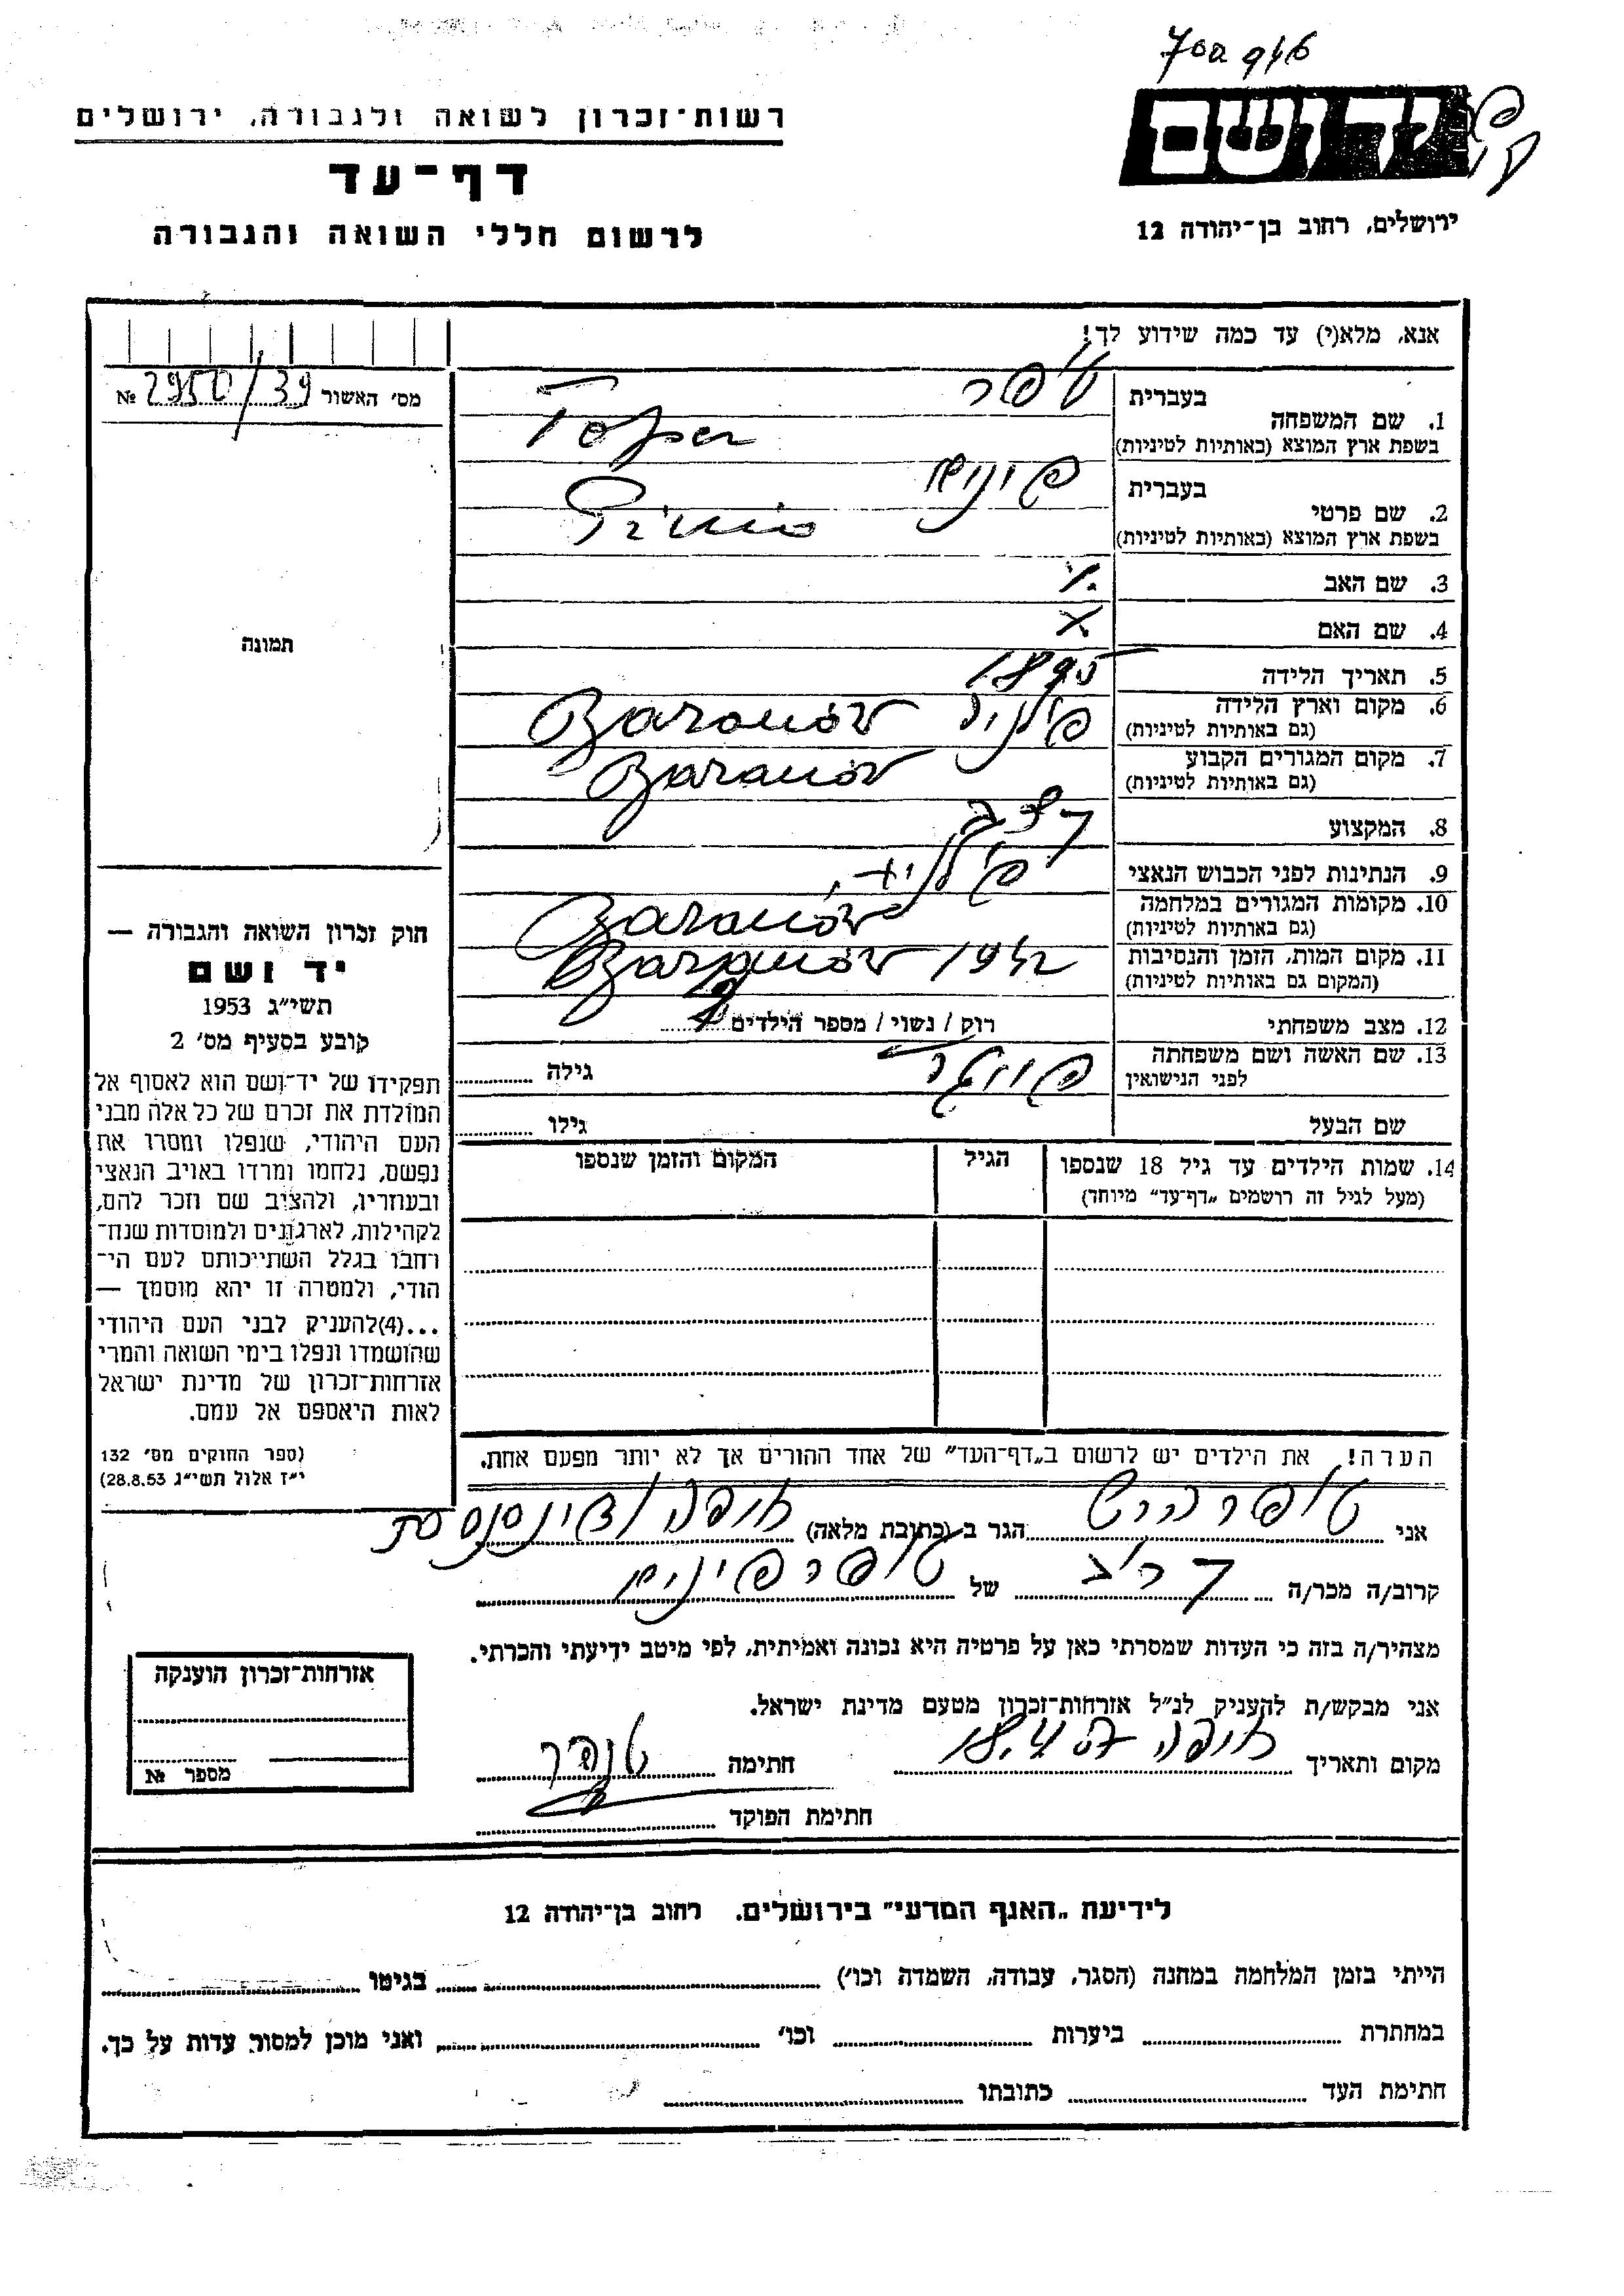 רשות־זכרון לשואה ולגבורה, ירושלים
דף־עד
לרשום חללי השואה והגבורה
ירושלים, רחוב בן־יהודה 12
אנא, מלא(י) עד כמה שידוע לך!
מס׳ האשור 2950/39 №
בעברית טפר
1. שם המשפחה
בשפת ארץ המוצא (באותיות לטיניות) Toper
בעברית פינוס
2. שם פרטי
בשפת ארץ המוצא (באותיות לטיניות)
3. שם האב
4. שם האם
תמונה
5. תאריך הלידה 1895
6. מקום וארץ הלידה
(גם באותיות לטיניות) פולניה Baranów
7. מקום המגורים הקבוע
(גם באותיות לטיניות) Baranów
8. המקצוע קצב
9. הנתינות לפני הכבוש הנאצי פולנית
10. מקומות המגורים במלחמה
(גם באותיות לטיניות) Baranów
11. מקום המות, הזמן והנסיבות
(המקום גם באותיות לטיניות) Baranów 1942
12. מצב משפחתי רוק / נשוי / מספר הילדים
13. שם האשה ושם משפחתה
לפני הנישואין גילה
שם הבעל גילו
14. שמות הילדים עד גיל 18 שנספו הגיל המקום והזמן שנספו
(מעל לגיל זה רושמים „דף־עד״ מיוחד)
חוק זכרון השואה והגבורה —
יד ושם
תשי״ג 1953
קובע בסעיף מס׳ 2
תפקידו של יד־ושם הוא לאסוף אל
המולדת את זכרם של כל אלה מבני
העם היהודי, שנפלו ומסרו את
נפשם, נלחמו ומרדו באויב הנאצי
ובעוזריו, ולהציב שם וזכר להם,
לקהילות, לארגונים ולמוסדות שנח־
רחבו בגלל השתייכותם לעם הי־
הודי, ולמטרה זו יהא מוסמך —
...(4)להעניק לבני העם היהודי
שהושמדו ונפלו בימי השואה והמרי
אזרחות־זכרון של מדינת ישראל
לאות היאספם אל עמם.
(ספר החוקים מס׳ 132
י״ז אלול תשי״ג 28.8.53)
הערה! את הילדים יש לרשום ב„דף־העד״ של אחד ההורים אך לא יותר מפעם אחת.
אני טופר הירש הגר ב (כתובת מלאה) חיפה
קרוב/ה מכר/ה קרוב של טופר פינוס
מצהיר/ה בזה כי העדות שמסרתי כאן על פרטיה היא נכונה ואמיתית, לפי מיטב ידיעתי והכרתי.
אני מבקש/ת להעניק לנ״ל אזרחות־זכרון מטעם מדינת ישראל.
מקום ותאריך חיפה 18.4.57 חתימה
חתימת הפוקד
אזרחות־זכרון הוענקה
מספר №
לידיעת „האגף המדעי״ בירושלים, רחוב בן־יהודה 12
הייתי בזמן המלחמה במחנה (הסגר, עבודה, השמדה וכו׳) בגיטו
במחתרת ביערות וכו׳ ואני מוכן למסור עדות על כך.
חתימת העד כתובתו